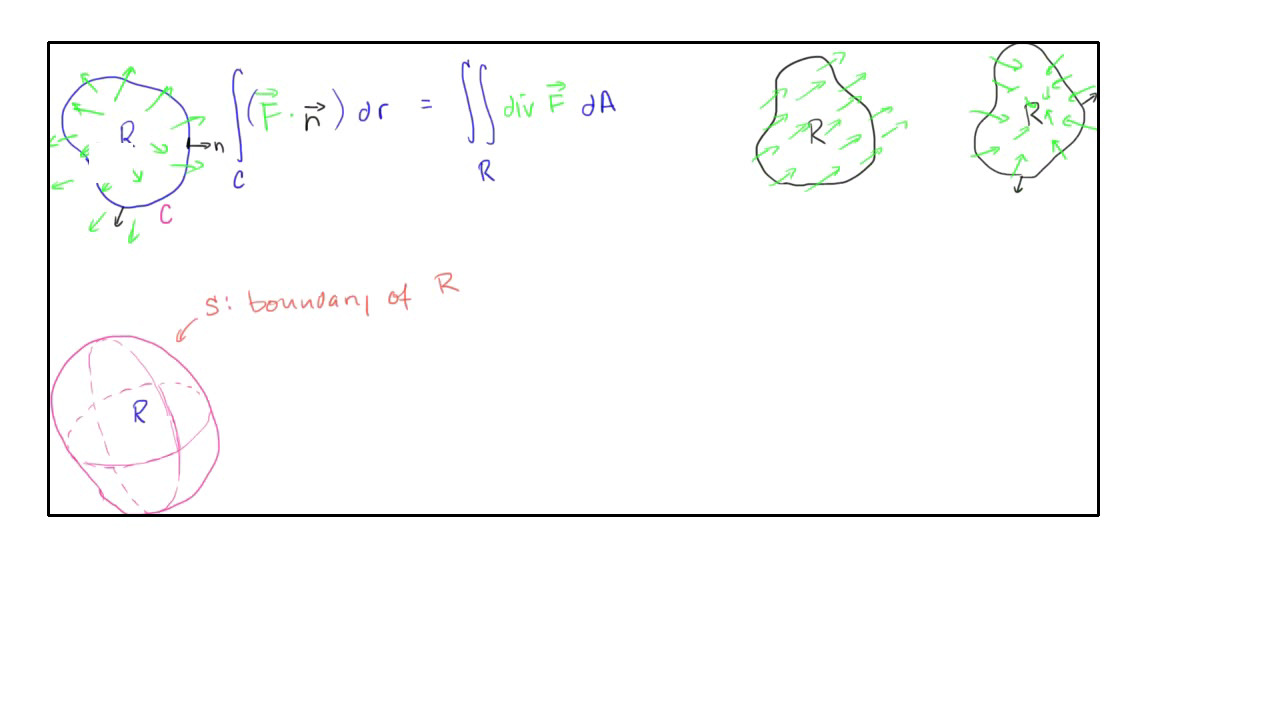 R. n C ∫_C (F⃗ · n⃗) dr = ∬_R div F⃗ dA
R
R
S: boundary of R
R